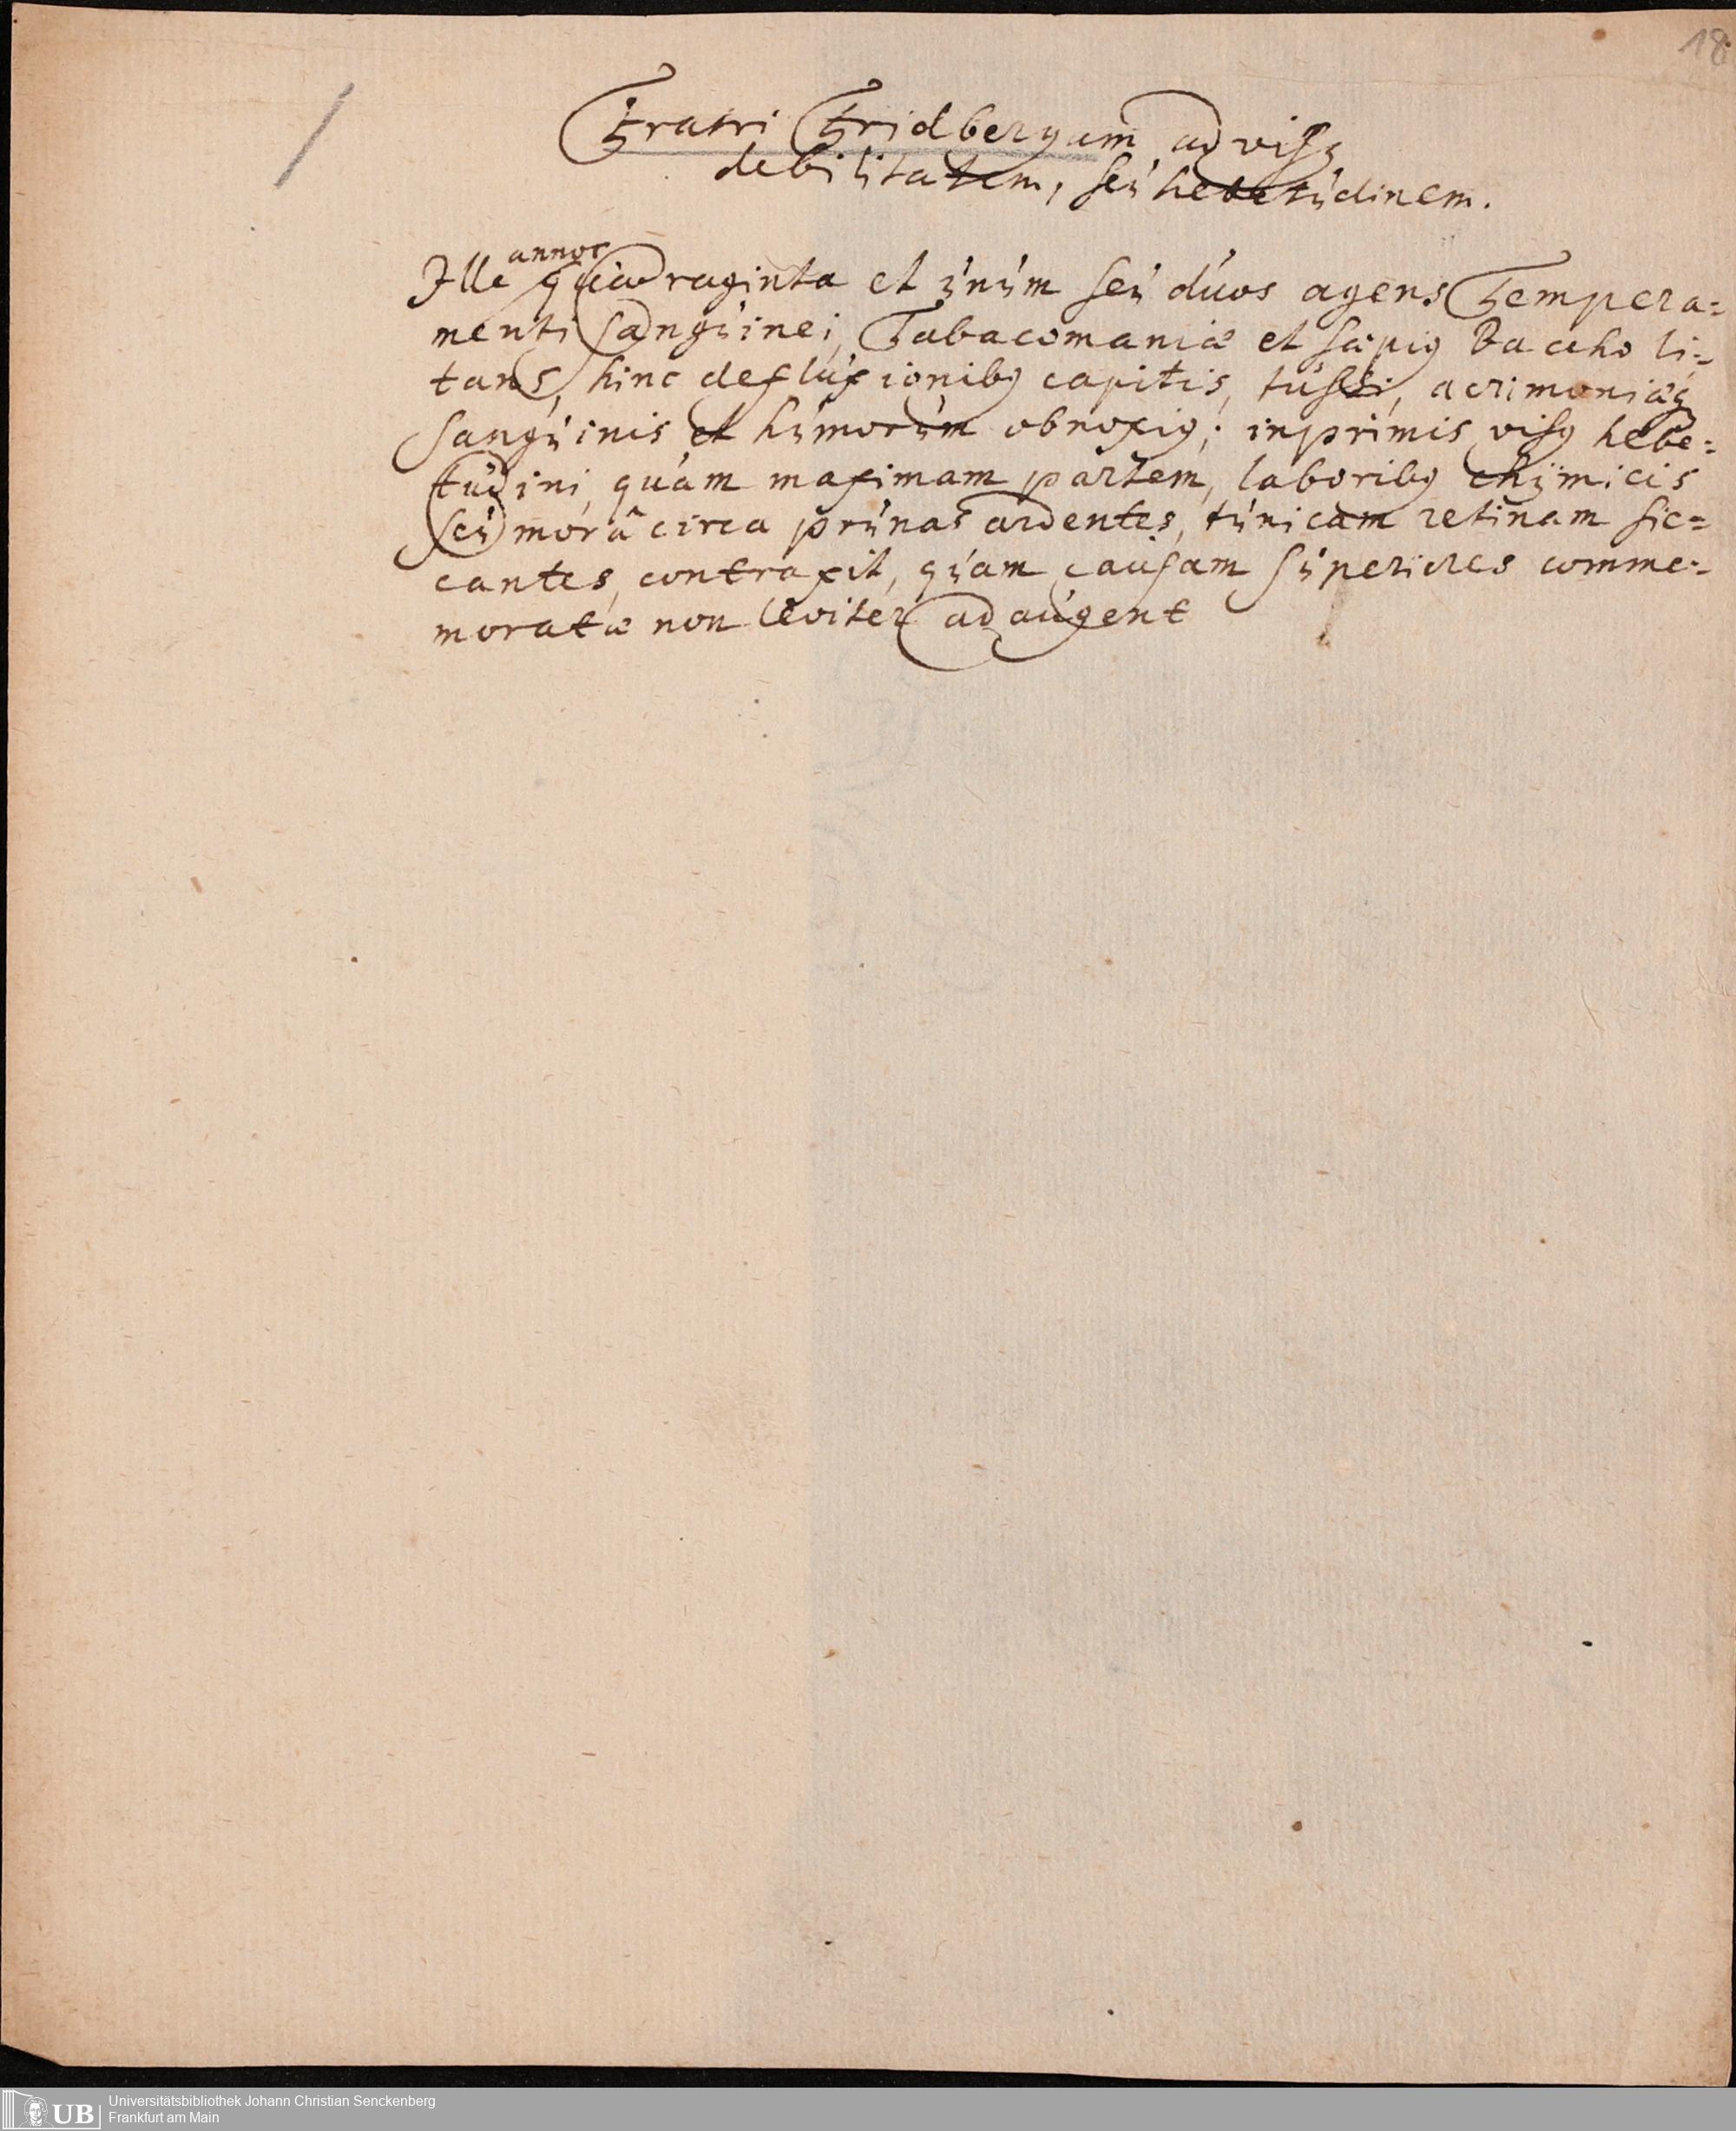 18
Fratri Fridbergam ad visꝰ
debilitatem, seu hebetudinem.
annos
Ille quadraginta et unum seu duos agens Tempera=
menti sanguinei, Tabacomaniæ et sæpiꝰ Baccho li=
tans, hinc defluxionibꝰ capitis, tussi, acrimoniæqꝫ
sanguinis et humorum obnoxiꝰ; inprimis visꝰ hebe=
tudini, quam maximam partem, laboribꝰ chÿmicis
seu morâ circa prunas ardentes, tunicam retinam sic=
cantes, contraxit, quam causam superiores comme=
moratæ non leviter adaugent
UB
Universitätsbibliothek Johann Christian Senckenberg
Frankfurt am Main